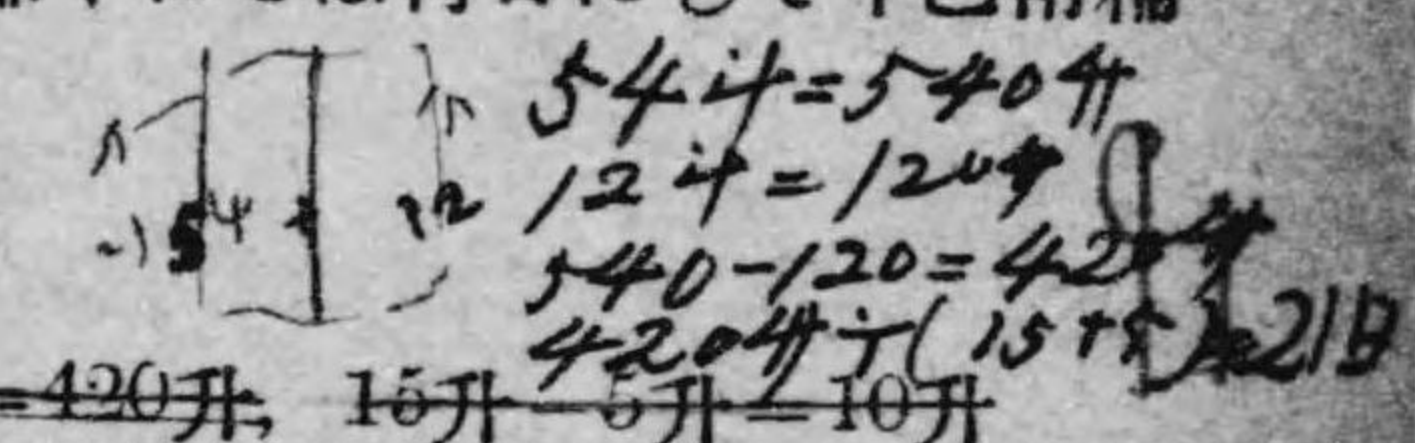 54斗=540升
12斗=120升
540-120=420升
54 12
420升÷(15+5)=21日
=420升, 15升-5升=10升